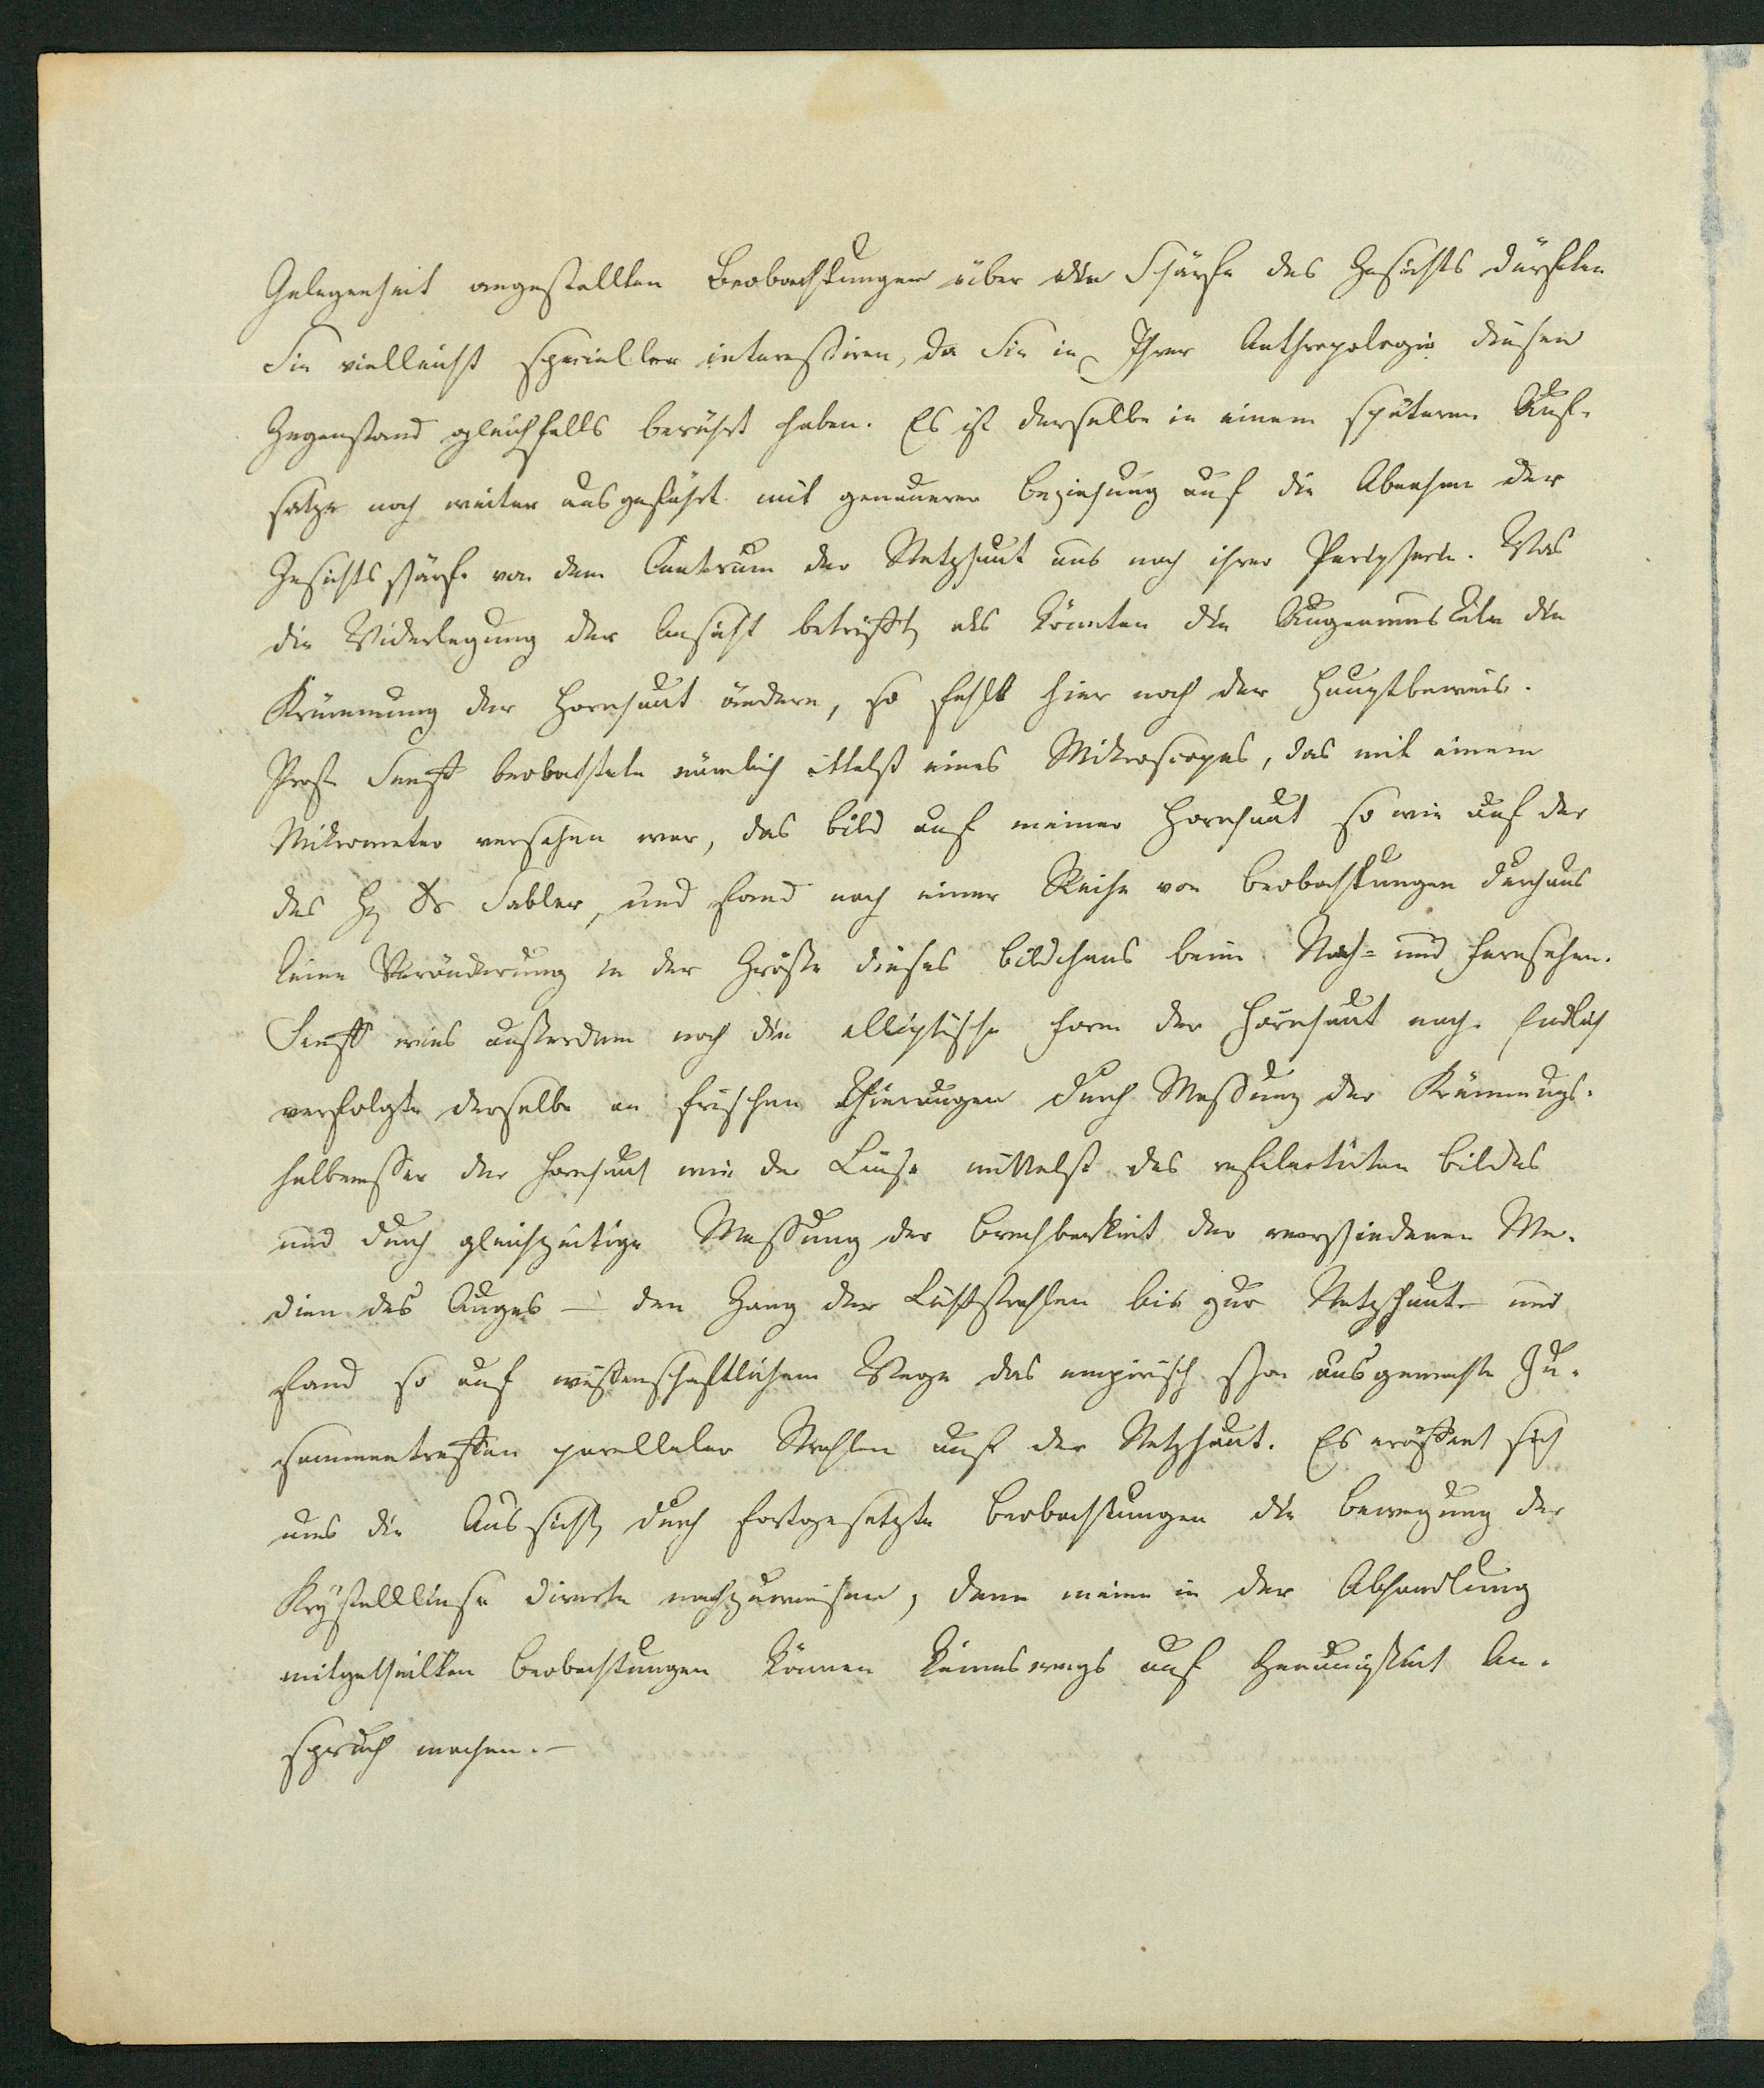 Gelegenheit angestellten Beobachtungen über die Schärfe des Gesichts dürften
Sie vielleicht specieller interessiren, da Sie in Ihrer Anthropologie diesen
Gegenstand gleichfalls berührt haben. Es ist derselbe in einem späteren Auf-
satze noch weiter ausgeführt mit genauerer Beziehung auf die Abnahme der
Gesichtsschärfe von dem Centrum der Netzhaut aus nach ihrer Peripherie. Was
die Widerlegung der Ansicht betrifft, als könnten die Augenmuskeln die
Krümmung der Hornhaut ändern, so fehlt hier noch der Hauptbeweis.
Prof. Senff beobachtete nämlich mittelst eines Mikroscopes, das mit einem
Mikrometer versehen war, das Bild auf meiner Hornhaut so wie auf der
des H Dr Sabler, und fand nach einer Reihe von Beobachtungen durchaus
keine Veränderung in der Größe dieses Bildchens beim Nah- und Fernsehen.
Senff wies außerdem noch die elliptische Form der Hornhaut nach. Endlich
verfolgte derselbe an frischen Thieraugen durch Messung der Krümmungs-
halbmesser der Hornhaut wie der Linse mittelst des reflectirten Bildes
und durch gleichzeitige Messung der Brechbarkeit der verschiedenen Me-
dien des Auges – den Gang der Lichtstrahlen bis zur Netzhaut und
fand so auf wissenschaftlichem Wege das empirisch schon ausgemachte Zu-
sammentreffen paralleler Strahlen auf der Netzhaut. Es eröffnet sich
uns die Aussicht, durch fortgesetzte Beobachtungen die Bewegung der
Krystalllinse directe nachzuweisen, denn meine in der Abhandlung
mitgetheilten Beobachtungen können keineswegs auf Genauigkeit An-
spruch machen. –